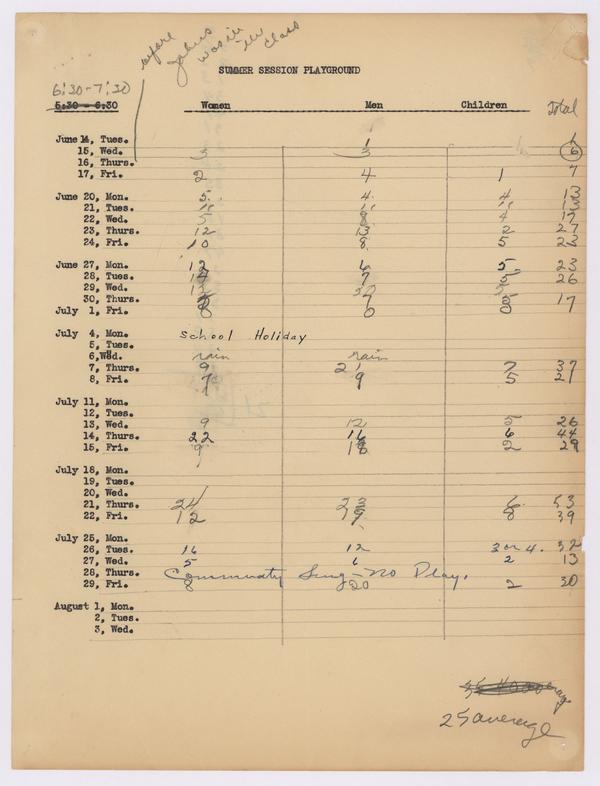 before
was in
the class
SUMMER SESSION PLAYGROUND
6:30-7:30
5:30 - 6:30 Women Men Children Total
June 14, Tues. 1 1
15, Wed. 3 3 6
16, Thurs.
17, Fri. 2 4 1 7
June 20, Mon. 5 4 4 13
21, Tues. 13
22, Wed. 5 8 4 17
23, Thurs. 12 13 2 27
24, Fri. 10 8 5 23
June 27, Mon. 12 6 5 23
28, Tues. 14 7 5 26
29, Wed.
30, Thurs. 7 5 17
July 1, Fri. 0 0 0
July 4, Mon. School Holiday
5, Tues.
6, Wed. rain rain
7, Thurs. 9 21 7 37
8, Fri. 7 9 5 21
July 11, Mon.
12, Tues.
13, Wed. 9 12 5 26
14, Thurs. 22 16 6 44
15, Fri. 9 18 2 29
July 18, Mon.
19, Tues.
20, Wed.
21, Thurs. 24 23 6 53
22, Fri. 12 19 8 39
July 25, Mon.
26, Tues. 16 12 3 or 4. 32
27, Wed. 5 6 2 13
28, Thurs. Community Sing - No Play.
29, Fri. 8 20 2 30
August 1, Mon.
2, Tues.
3, Wed.
25 average